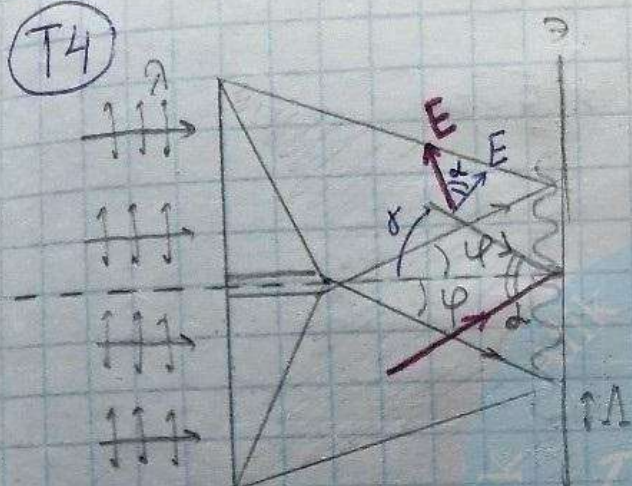 T4
λ
Э
E
E
α
γ
φ
φ
α
Λ